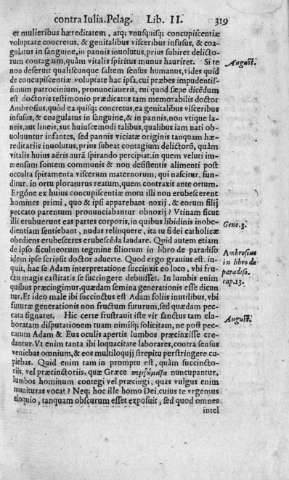 contra Iulia. Pelag. Lib. II. 319
et mulieribus hæreditatem, atq; vnusquisq; concupiscentiæ
voluptate concretus, & genitalibus visceribus infusus, & coa-
gulatus in sanguine, in pannis inuolutus, prius subiret delicto-
rum contagium, quàm vitalis spiritus munus hauriret. Si te
non deserit qualiscunque saltem sensus humanus, vides quid
de concupiscentiæ voluptate hac ista, cui præbes impudentis-
simum patrocinium, pronunciauerit, cui quod sæpe dicẽdum
est doctoris testimonio prædicatus tam memorabilis doctor
Ambrosius, quòd ea quisq; concretus, ea genitalibus visceribus
infusus, & coagulatus in sanguine, & in pannis, non vtique la-
neis, aut lineis, vel huiuscemodi talibus, qualibus iam nati ob-
uoluuntur infantes, sed pannis viciatæ originis tanquam hæ-
reditariis inuolutus, prius subeat contagium delictorũ, quàm
vitalis huius aëris aura spirando percipiat, in quem velut im-
mensum fontem communis & non desistentis alimenti post
occulta spiramenta viscerum maternorum, qui nascitur, fun-
ditur, in ortu ploraturus reatum, quem contraxit ante ortum.
Ergóne ex huius cupiscentiæ motu illi non erubescerent
homines primi, quo & ipsi apparebant noxij, & eorum filij
peccato parentum pronunciabantur obnoxij? Vtinam sicut
illi erubuerunt contegere partes corporis, in quibus libidinis inobe-
dientiam sentiebant, nudus relinquere, ita tu fidei catholicæ
obediens erubesceres erubescẽda laudare. Quid autem etiam
de ipsis ficulneorum tegmine foliorum in libro de paradiso
idem ipse scripsit doctor aduerte. Quod ergo grauius est. in-
quit, hac se Adam interpretatione succinxit eo loco, vbi fru-
ctu magis castitatis se succingere debuisset. In lumbis enim
quibus præcingimur, quædam semina generationis esse dicun-
tur. Et ideo male ibi succinctus est Adam foliis inutilibus, vbi
futuræ generationis non fructum futurum, sed quædam pec-
cata signaret. Hic certe frustrauit iste vir sanctus tam ela-
boratam disputationem tuam
Adam & Eua oculis apertis lumbos præcinxisse cre-
dantur. Vt enim tanta ibi loquacitate laborares, contra sensus
venisbas omnium, & eos multiloquij strepitu perstringere cu-
piebas. Quid enim tam in promptu est, quàm succincto-
riis, vel præcinctoriis, quæ Græce περιζώματα nuncupantur,
lumbos hominum contegi vel præcingi, quas vulgus enim
manituras vocat? Neq; hoc ille homo Dei, cuius te vrgemus
eloquio, tanquam obscurum esset exposuit, sed quod omnes
intel
August.
Gene. 3.
Ambrosius
in libro de
paradiso.
cap. 13.
August.